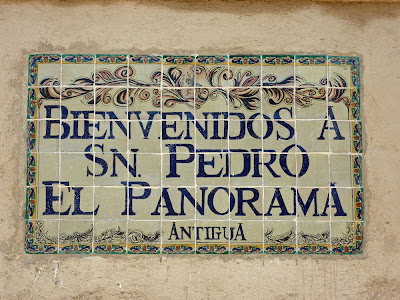 BIENVENIDOS A
SN. PEDRO
EL PANORAMA
ANTIGUA